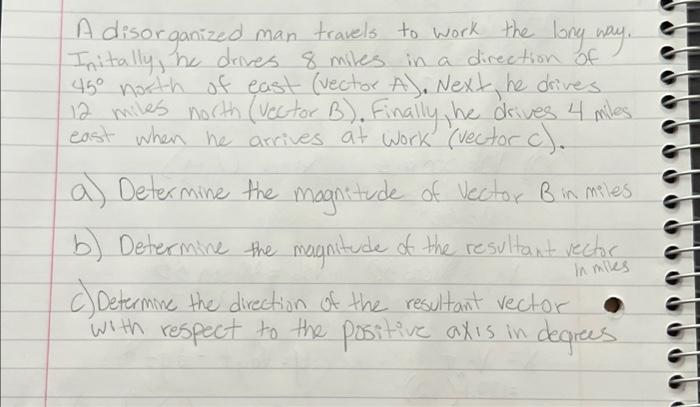 A disorganized man travels to work the long way.
Initally, he drives 8 miles in a direction of
45° north of east (vector A). Next, he drives
12 miles north (vector B). Finally, he drives 4 miles
east when he arrives at work (vector C).
a) Determine the magnitude of Vector B in miles
b) Determine the magnitude of the resultant vector
in miles
c) Determine the direction of the resultant vector
with respect to the positive axis in degrees